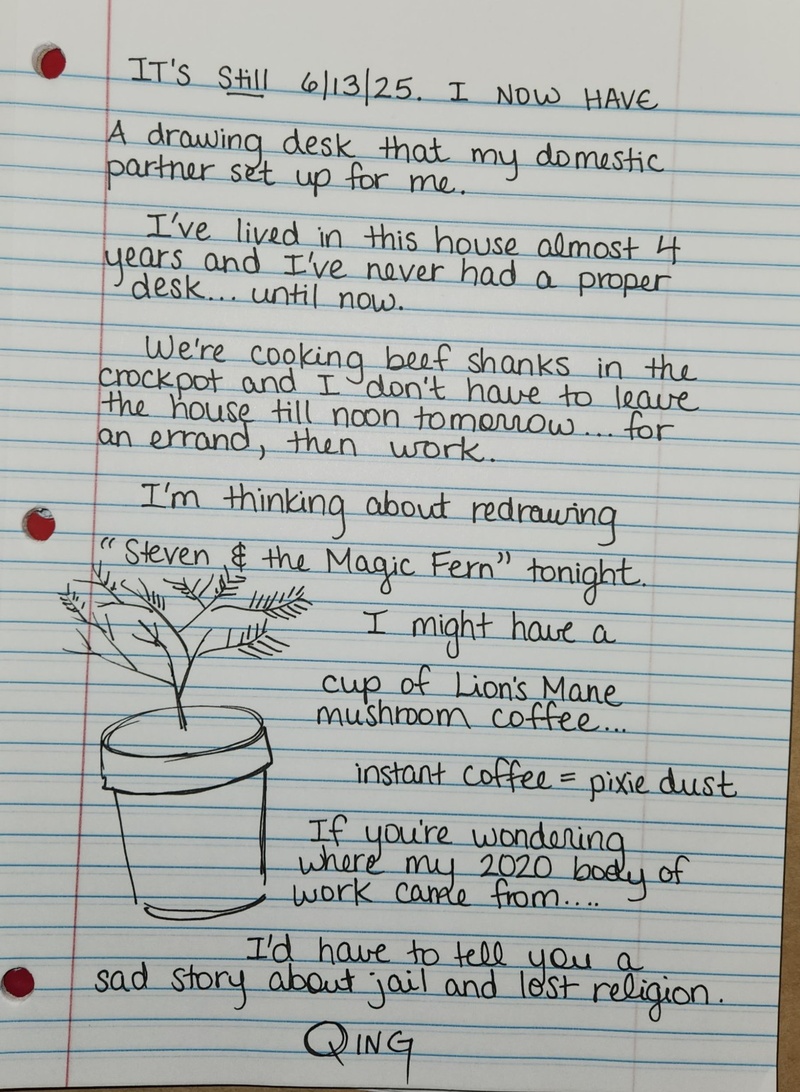 IT'S Still 6/13/25. I NOW HAVE
A drawing desk that my domestic
partner set up for me.
I've lived in this house almost 4
years and I've never had a proper
desk... until now.
We're cooking beef shanks in the
crockpot and I don't have to leave
the house till noon tomorrow... for
an errand, then work.
I'm thinking about redrawing
"Steven & the Magic Fern" tonight.
I might have a
cup of Lion's Mane
mushroom coffee...
instant coffee = pixie dust
If you're wondering
where my 2020 body of
work came from....
I'd have to tell you a
sad story about jail and lost religion.
QING